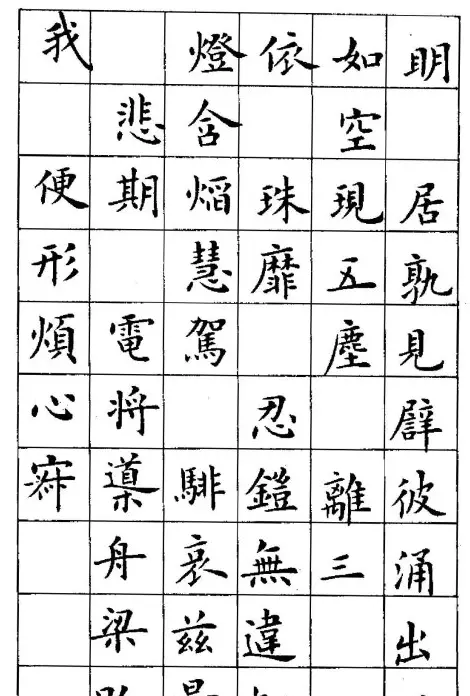 明居孰見辟彼涌出
如空現五塵離三
依珠靡忍鎧無違
燈含焰慧駕騑哀茲
悲期電將導舟梁
我便形煩心